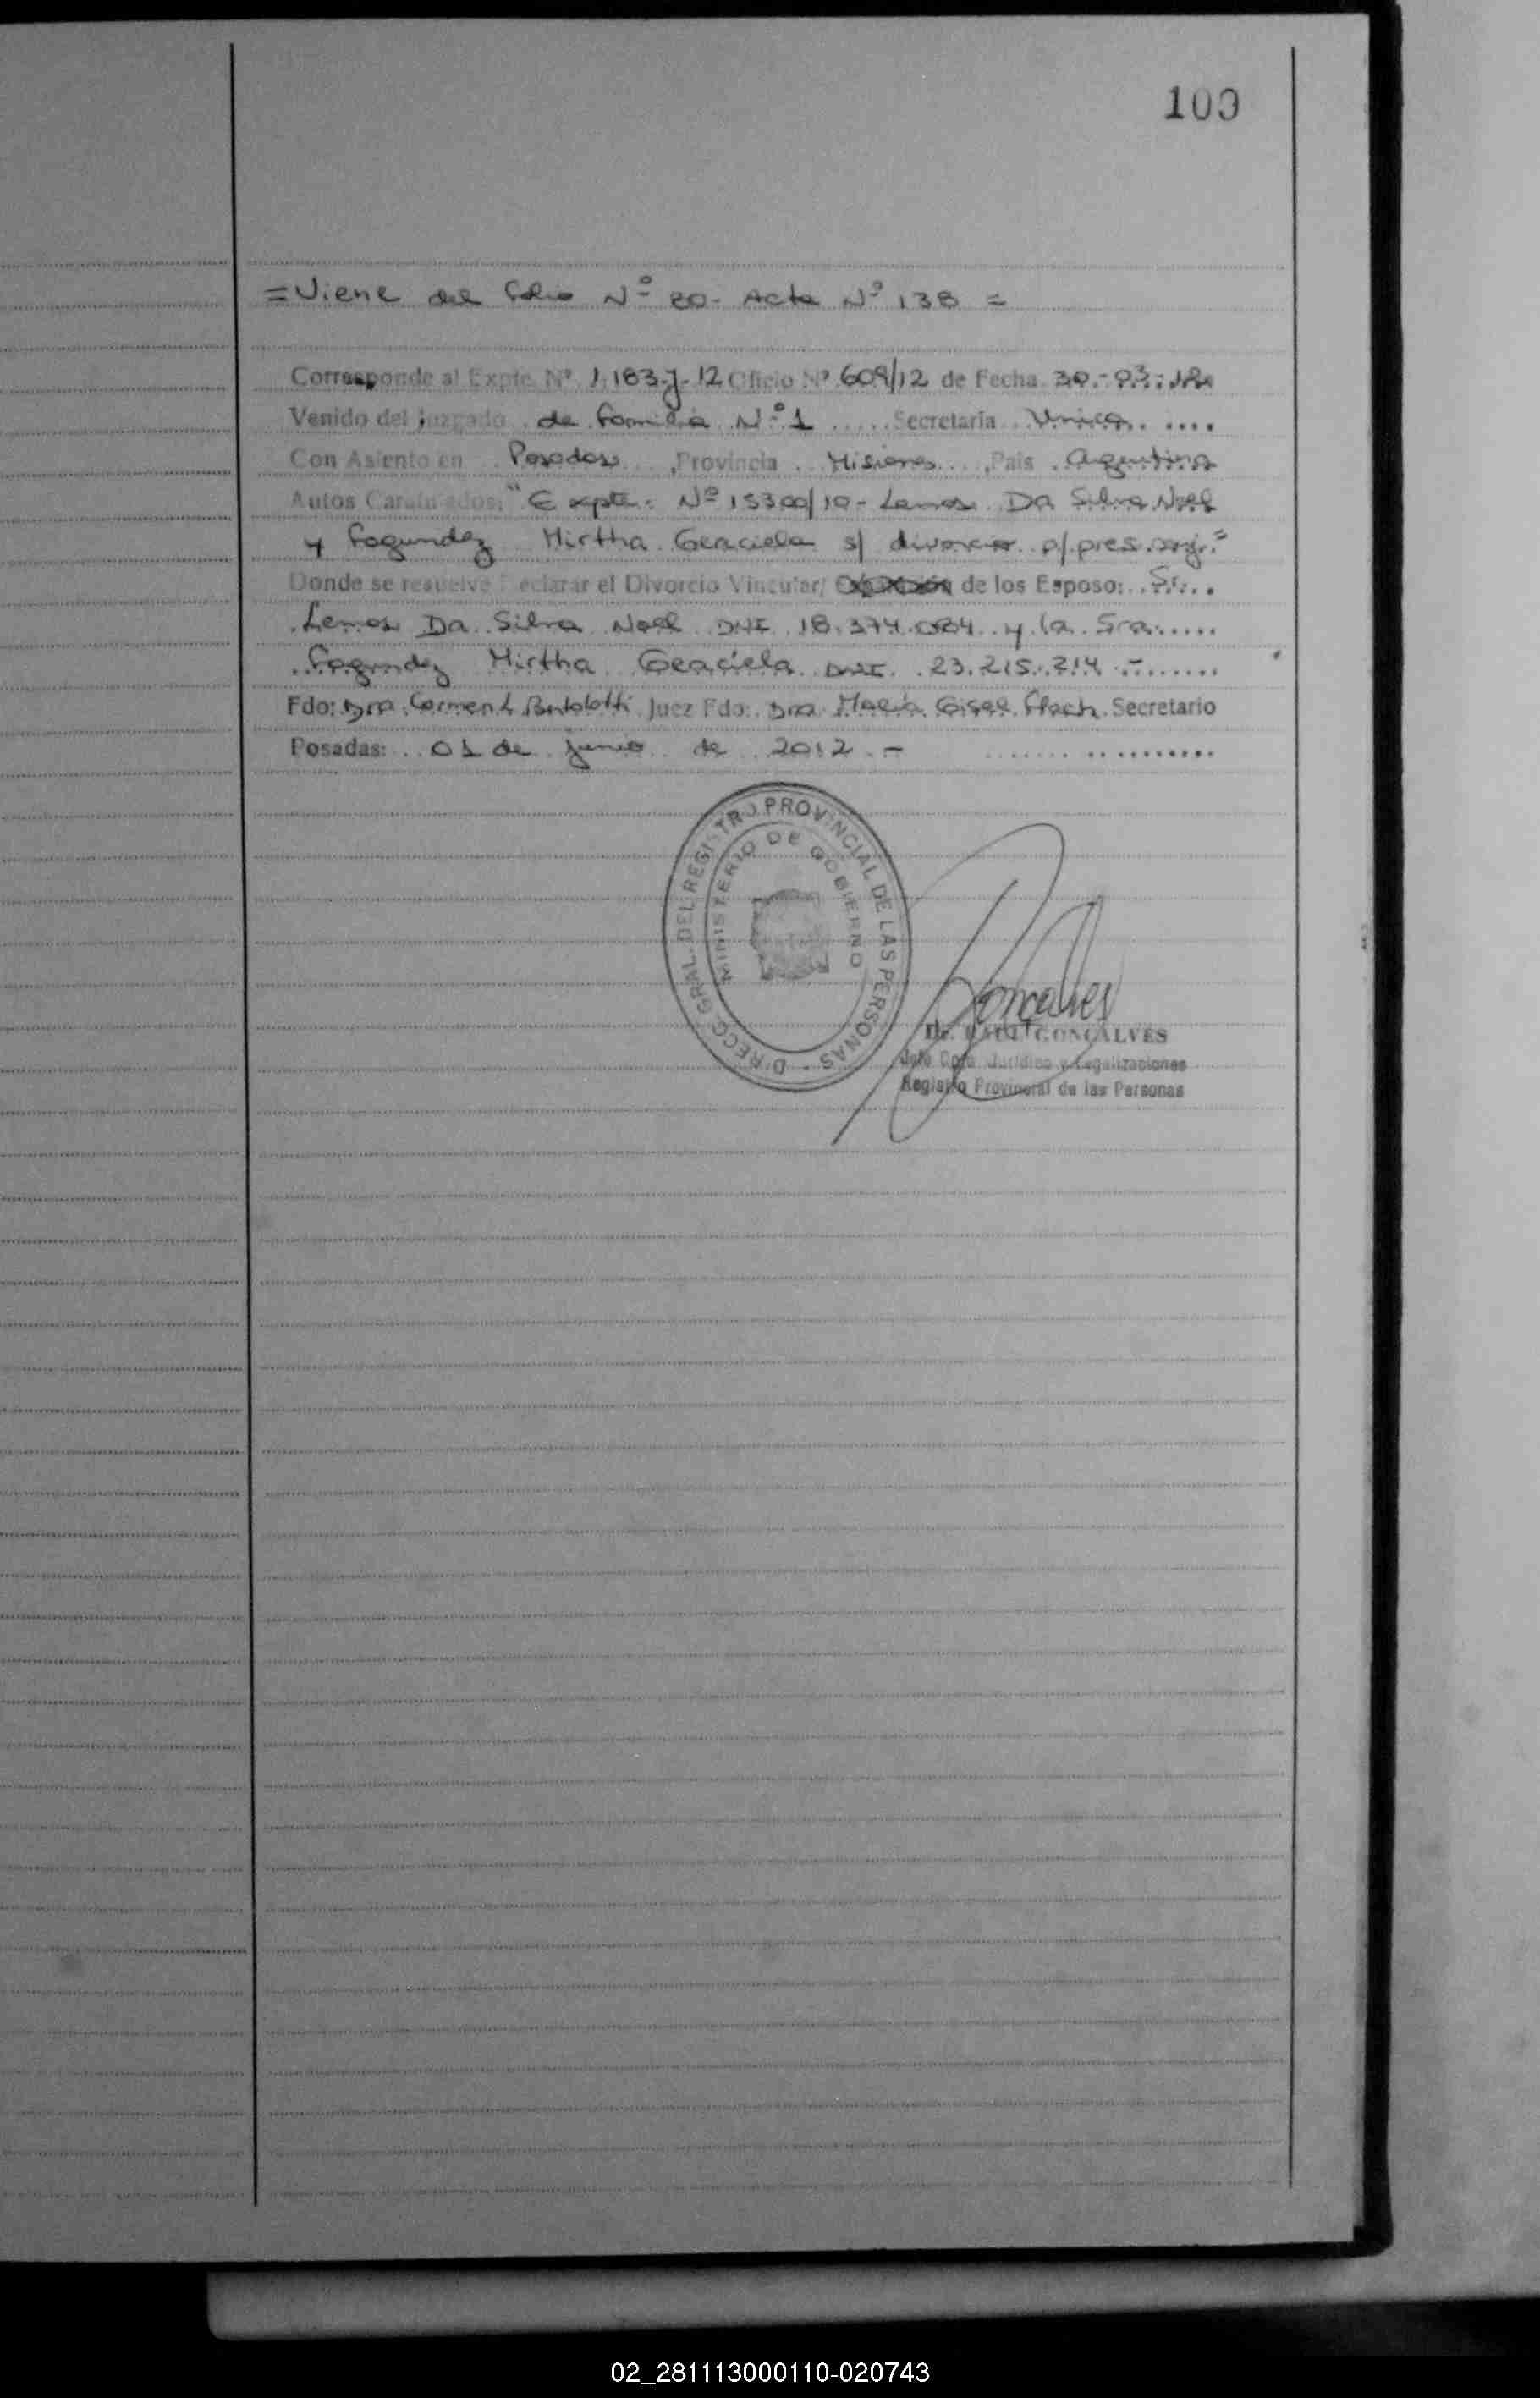 100
=Viene del folio Nº 80- Acta Nº 138 =
Corresponde al Expte. Nº 1.183-J-12 Oficio Nº 609/12 de Fecha 30-03-12
Venido del Juzgado de familia Nº 1 Secretaría Unica
Con Asiento en Posadas, Provincia Misiones, País Argentina
Autos Caratulados: "Expte. Nº 15300/10- Lemos Da Silva Noel
y Fagundez Mirtha Graciela s/ divorcio p/pres. conj."
Donde se resuelve Declarar el Divorcio Vincular/ de los Esposo: Sr.
Lemos Da Silva Noel DNI 18.374.084 y la Sra.
Fagundez Mirtha Graciela DNI 23.215.214.-
Fdo: Dra. Carmen Bertolotti Juez Fdo: Dra. María Gisel Flach Secretario
Posadas: 01 de junio de 2012.-
DIRECC. GRAL. DEL REGISTRO PROVINCIAL DE LAS PERSONAS -
MINISTERIO DE GOBIERNO
Goncalves
Dr. RAUL GONCALVES
Jefe Dpto. Jurídico y Legalizaciones
Registro Provincial de las Personas
02_281113000110-020743